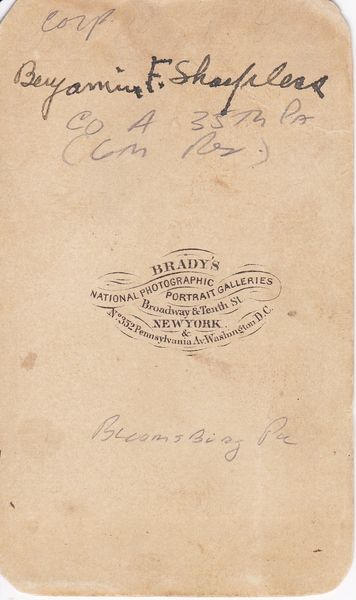 Corp.
Benjamin F. Sharpless
CO A 35TH PA
(6TH Res.)
BRADY'S
NATIONAL PHOTOGRAPHIC
PORTRAIT GALLERIES
Broadway & Tenth St
NEW YORK
&
No. 352 Pennsylvania Av. Washington D.C.
Bloomsburg Pa